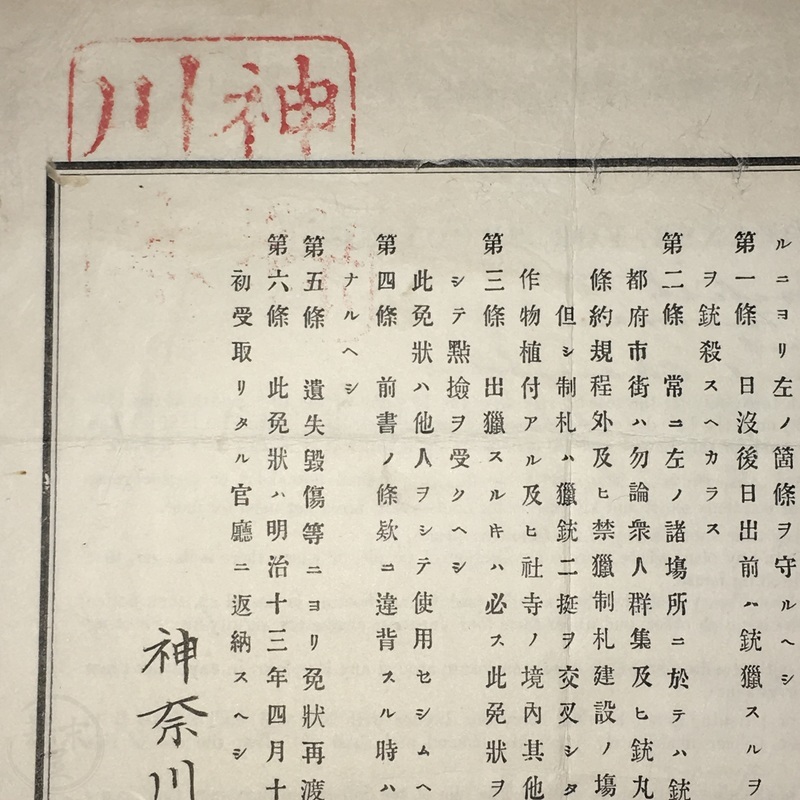 神川
ルニヨリ左ノ箇條ヲ守ルヘシ
第一條 日沒後日出前ハ銃獵スルヲ
ヲ銃殺スヘカラス
第二條 常ニ左ノ諸塲所ニ於テハ銃
都府市街ハ勿論衆人群集及ヒ銃丸
條約規程外及ヒ禁獵制札建設ノ塲
但シ制札ハ獵銃二挺ヲ交叉シタ
作物植付アル及ヒ社寺ノ境內其他
第三條 出獵スルキハ必ス此免狀ヲ
シテ點撿ヲ受クヘシ
此免狀ハ他人ヲシテ使用セシムヘ
第四條 前書ノ條欵ニ違背スル時ハ
ナルヘシ
第五條 遺失毀傷等ニヨリ免狀再渡
第六條 此免狀ハ明治十三年四月十
初受取リタル官廳ニ返納スヘシ
神奈川